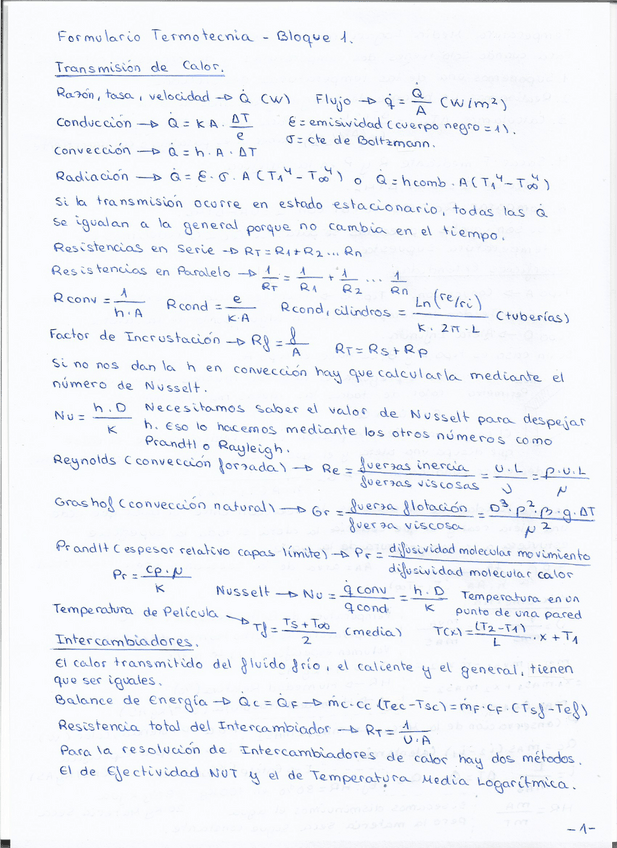 Formulario Termotecnia - Bloque 1.
Transmisión de Calor.
Razón, tasa, velocidad → Q̇ (W)   Flujo → q̇ = Q̇/A (W/m²)
Conducción → Q̇ = K A · ΔT/e   ε = emisividad (cuerpo negro = 1).
σ = cte de Boltzmann.
Convección → Q̇ = h · A · ΔT
Radiación → Q̇ = ε · σ · A (T1⁴ - T∞⁴) o Q̇ = hcomb · A (T1⁴ - T∞⁴)
Si la transmisión ocurre en estado estacionario, todas las Q̇
se igualan a la general porque no cambia en el tiempo.
Resistencias en Serie → RT = R1 + R2 ... Rn
Resistencias en Paralelo → 1/RT = 1/R1 + 1/R2 ... 1/Rn
Rconv = 1/(h · A)   Rcond = e/(K·A)   Rcond, cilindros = Ln(re/ri)/(K · 2π · L) (tuberías)
Factor de Incrustación → Rf = f/A   RT = Rs + Rp
Si no nos dan la h en convección hay que calcularla mediante el
número de Nusselt.
Nu = h · D/K   Necesitamos saber el valor de Nusselt para despejar
h. Eso lo hacemos mediante los otros números como
Prandtl o Rayleigh.
Reynolds (convección forzada) → Re = fuerzas inercia/fuerzas viscosas = U · L/ν = ρ · U · L/μ
Grashof (convección natural) → Gr = fuerza flotación/fuerza viscosa = D³ · ρ² · β · g · ΔT/μ²
Prandlt (espesor relativo capas límite) → Pr = difusividad molecular movimiento/difusividad molecular calor
Pr = cp · μ/K   Nusselt → Nu = q̇ conv/q̇ cond = h · D/K   Temperatura en un
punto de una pared
Temperatura de Película → Tf = (Ts + T∞)/2 (media)   T(x) = (T2 - T1)/L · x + T1
Intercambiadores.
El calor transmitido del fluído frío, el caliente y el general, tienen
que ser iguales.
Balance de Energía → Q̇c = Q̇F → ṁc · cc (Tec - Tsc) = ṁF · cF · (Tsf - Tef)
Resistencia total del Intercambiador → RT = 1/(U · A)
Para la resolución de Intercambiadores de calor hay dos métodos.
El de Efectividad NUT y el de Temperatura Media Logarítmica.
-1-